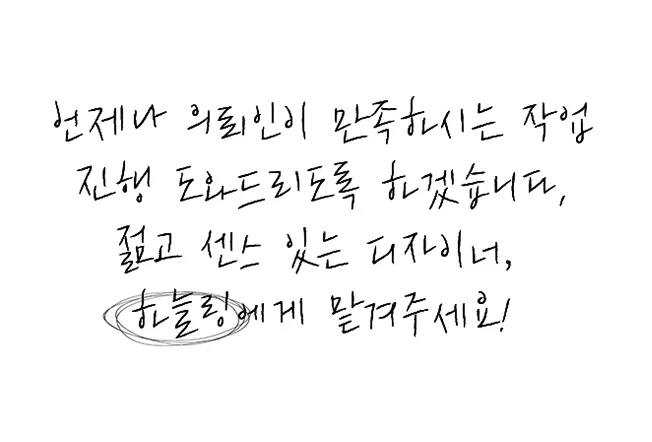 언제나 의뢰인이 만족하시는 작업
진행 도와드리도록 하겠습니다,
젊고 센스 있는 디자이너,
하늘링에게 맡겨주세요!